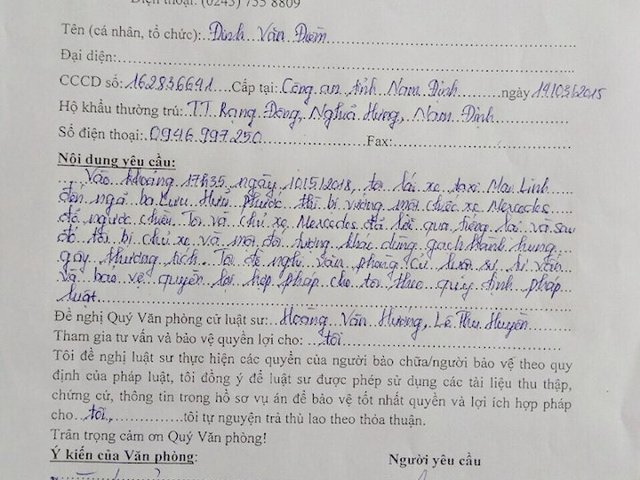 Điện thoại: (0243) 755 8809
Tên (cá nhân, tổ chức): Đinh Văn Điềm
Đại diện:
CCCD số: 162836641 Cấp tại: Công an tỉnh Nam Định ngày 19/03/2015
Hộ khẩu thường trú: TT. Rạng Đông, Nghĩa Hưng, Nam Định
Số điện thoại: 0946.997.250 Fax:
Nội dung yêu cầu:
Vào khoảng 17h35, ngày 10/5/2018, tôi lái xe taxi Mai Linh
đến ngã ba Lưu Hữu Phước thì bị vướng một chiếc xe Mercedes
đỗ ngược chiều. Tôi và chủ xe Mercedes đã lời qua tiếng lại và sau
đó tôi bị chủ xe và một đối tượng khác dùng gạch hành hung,
gây thương tích. Tôi đề nghị văn phòng cử luật sư tư vấn
và bảo vệ quyền lợi hợp pháp cho tôi theo quy định pháp
luật
Đề nghị Quý Văn phòng cử luật sư: Hoàng Văn Hướng, Lê Thu Huyền
Tham gia tư vấn và bảo vệ quyền lợi cho: tôi
Tôi đề nghị luật sư thực hiện các quyền của người bào chữa/người bảo vệ theo quy
định của pháp luật, tôi đồng ý để luật sư được phép sử dụng các tài liệu thu thập,
chứng cứ, thông tin trong hồ sơ vụ án để bảo vệ tốt nhất quyền và lợi ích hợp pháp
cho tôi, tôi tự nguyện trả thù lao theo thỏa thuận.
Trân trọng cảm ơn Quý Văn phòng!
Ý kiến của Văn phòng: Người yêu cầu